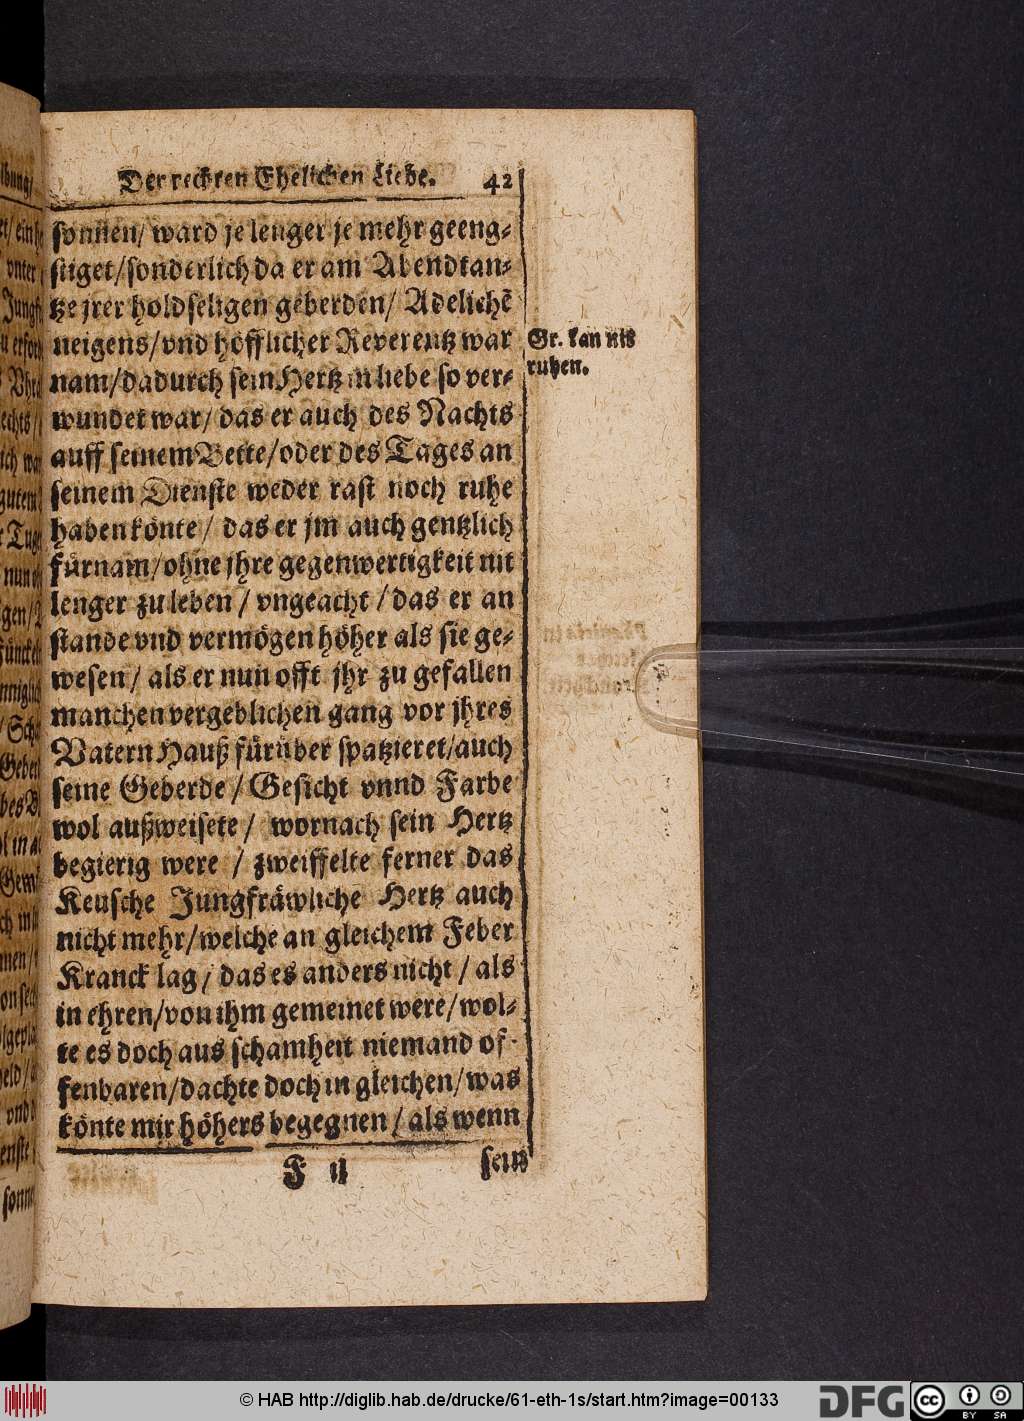 Der rechten Ehelichen Liebe. 42
sonnen/ ward je lenger je mehr geeng-
stiget/sonderlich da er am Abendtan-
tze jrer holdseligen geberden/ Adelichē
neigens/vnd höfflicher Reverentz war
nam/dadurch sein Hertz in liebe so ver-
wundet war/ das er auch des Nachts
auff seinem Bette/oder des Tages an
seinem Dienste weder rast noch ruhe
haben könte/ das er jm auch gentzlich
fürnam/ohne jhre gegenwertigkeit nit
lenger zu leben/ vngeacht/das er an
stande vnd vermögen höher als sie ge-
wesen/ als er nun offt jhr zu gefallen
manchen vergeblichen gang vor jhres
Vatern Hauß fürüber spatzieret/auch
seine Geberde/ Gesicht vnnd Farbe
wol außweisete/ wornach sein Hertz
begierig were/ zweiffelte ferner das
Keusche Jungfräwliche Hertz auch
nicht mehr/welche an gleichem Feber
Kranck lag/ das es anders nicht/ als
in ehren/von ihm gemeinet were/wol-
te es doch aus schamheit niemand of-
fenbaren/dachte doch in gleichen/was
könte mir höhers begegnen/ als wenn
F ij sein
Gr. kan nit
ruhen.
© HAB http://diglib.hab.de/drucke/61-eth-1s/start.htm?image=00133
DFG
cc
BY SA